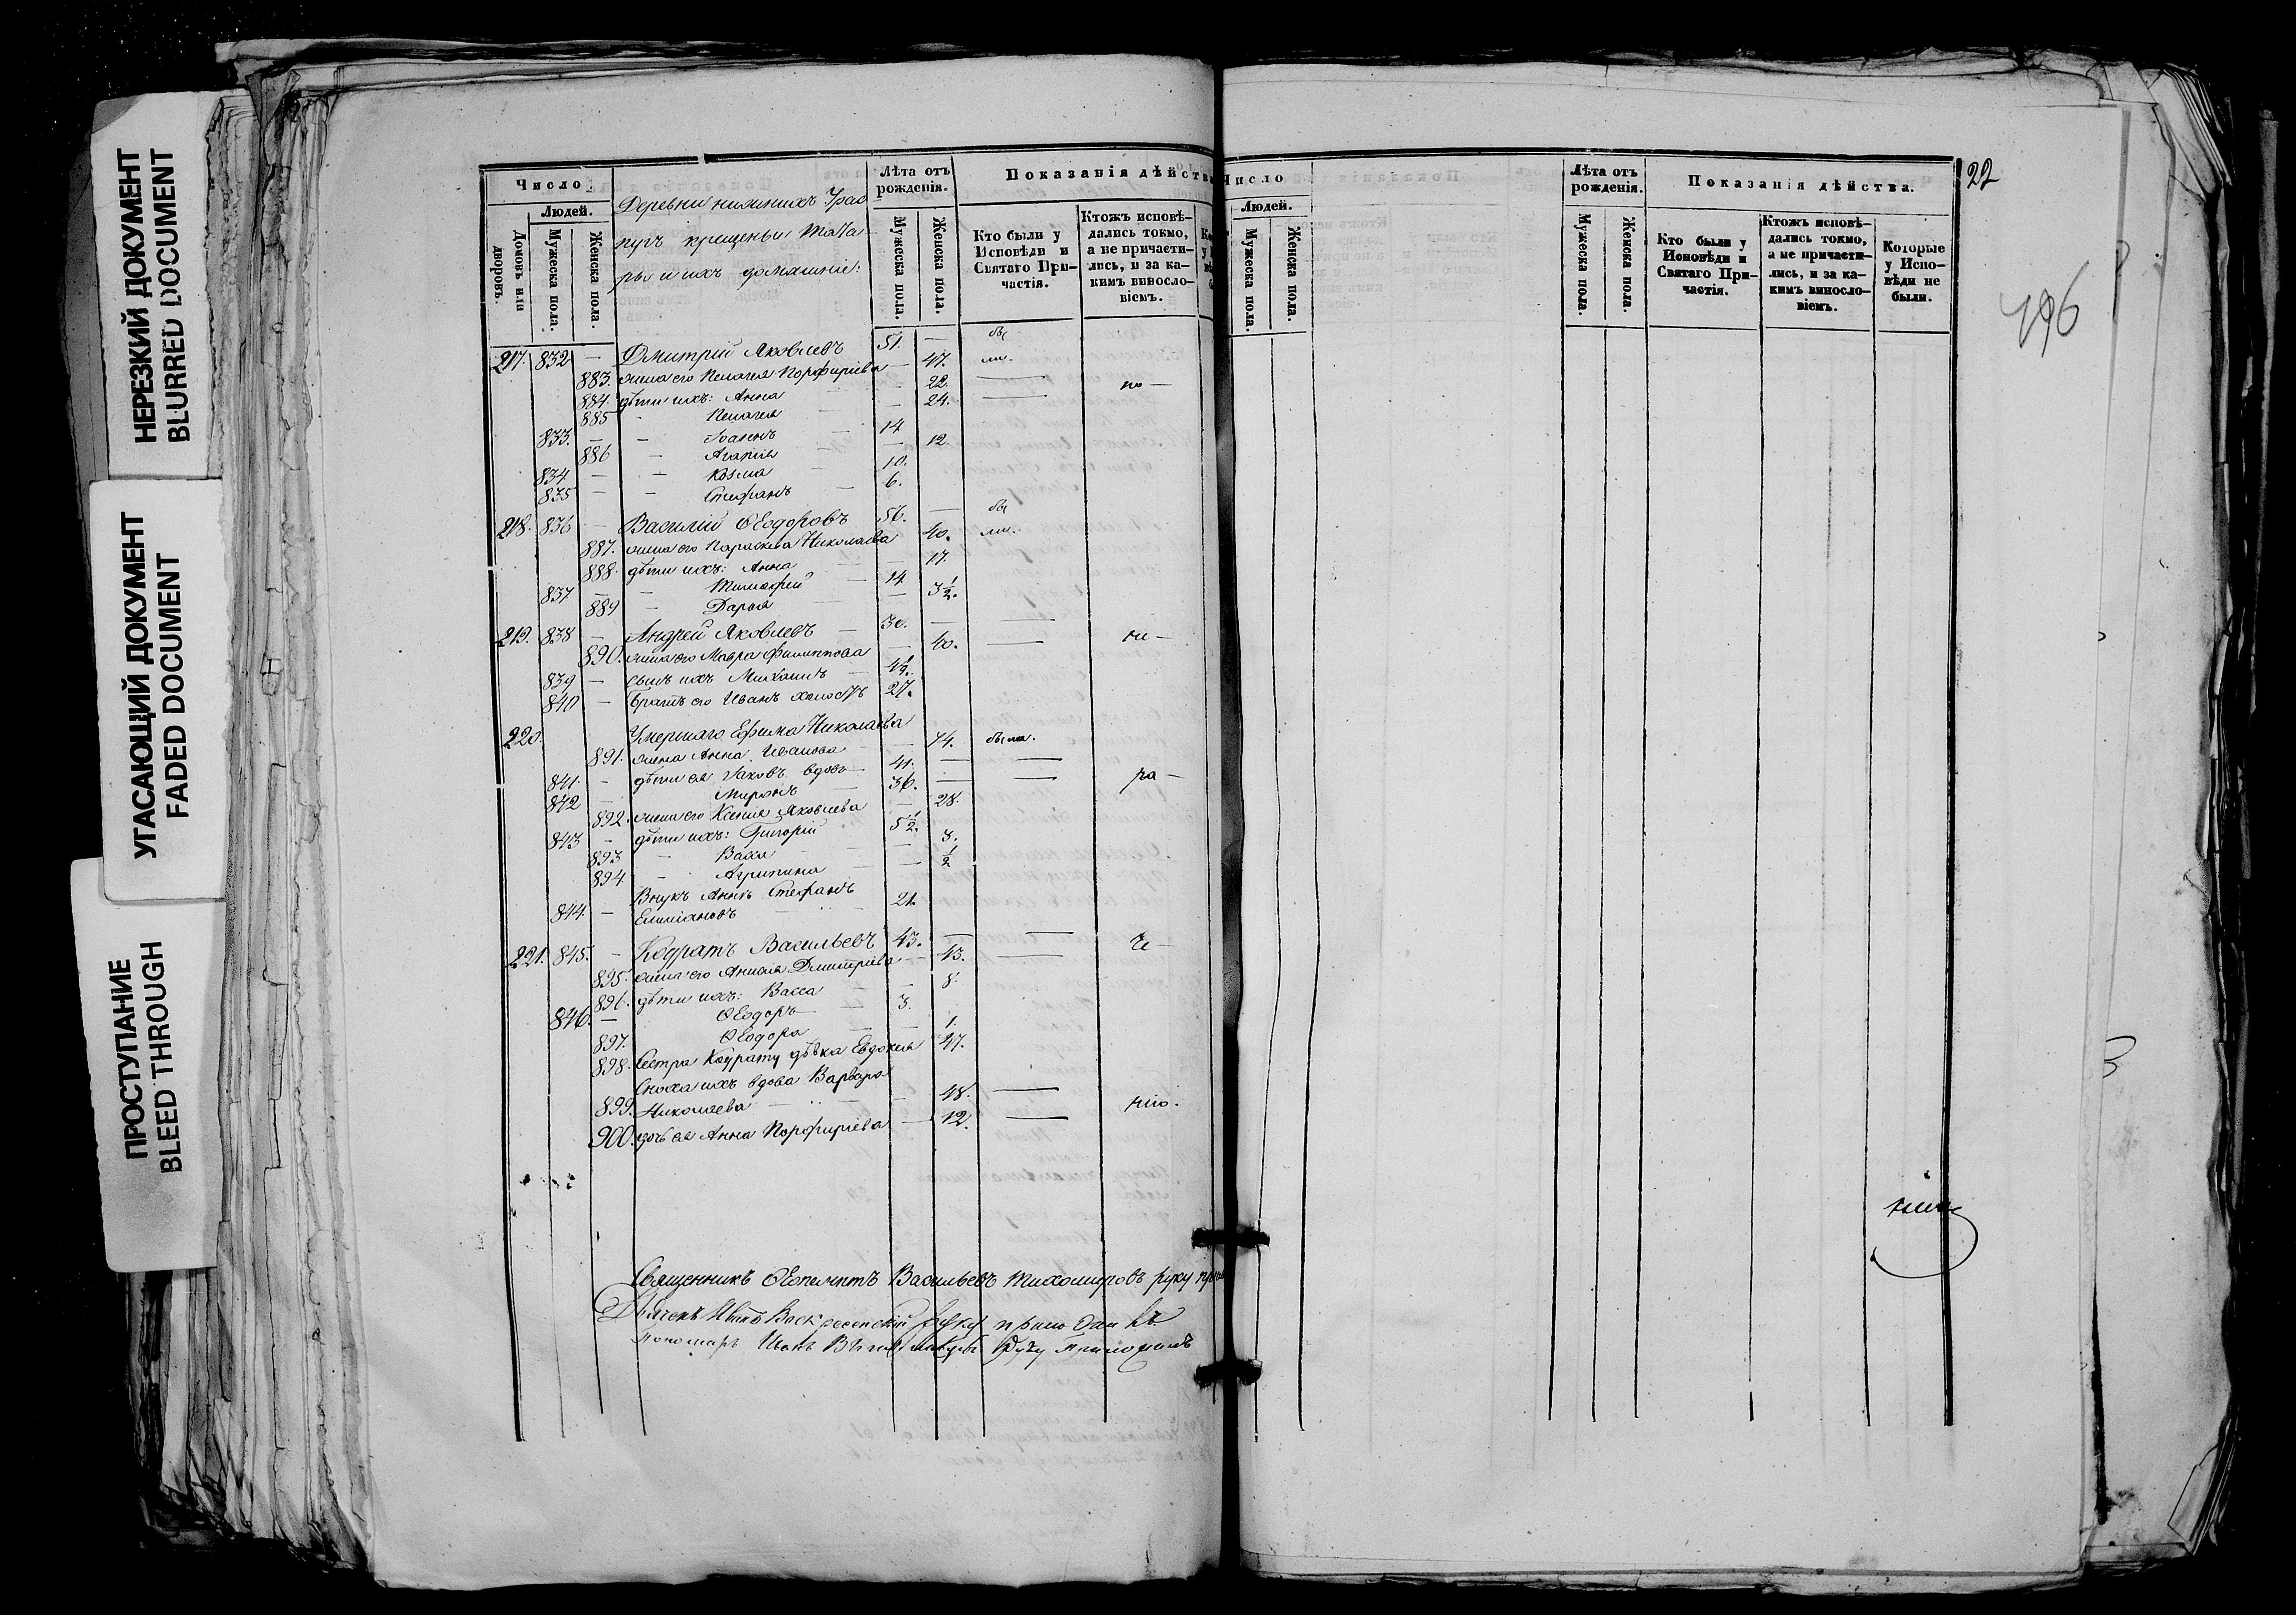 НЕРЕЗКИЙ ДОКУМЕНТ
BLURRED DOCUMENT
УГАСАЮЩИЙ ДОКУМЕНТ
FADED DOCUMENT
ПРОСТУПАНИЕ
BLEED THROUGH
Число
Людей.
Домовъ или дворовъ.
Мужеска пола.
Женска пола.
Деревни нижнихъ
крещены
ры и ихъ домашніе:
Лѣта отъ рожденія.
Мужеска пола.
Женска пола.
Показанія дѣйств
Кто были у Исповѣди и Святаго Причастія.
Ктожъ исповѣдались токмо, а не причастились, и за какимъ винословіемъ.
217. 832 — Дмитрій Яковлевъ 51. — бы
883. жена его Пелагея Порфиріева — 47. ли.
884. дѣти ихъ: Анна — 22. —
885 — Пелагея — 24. — по —
833. — — Іоаннъ — 14
886 — Агапія — 12.
834 — — Козма 10.
835 — — Стефанъ — 6.
218. 836 — Василій Ѳеодоровъ 56. — бы
887. жена его Параскева Николаева 40. ли.
888. дѣти ихъ: Анна — 17.
837 — — Тимофей — 14
889 — Дарья — 3½.
219. 838 — Андрей Яковлевъ — 30. — —
890. жена его Мавра Филиппова — 40. — не —
839 — сынъ ихъ Михаилъ — 4½.
840 — Братъ его Иванъ холостъ 27.
220. Умершаго Ефима Николаева
891. жена Анна Иванова — 74. была.
841. — дѣти ея Іаковъ вдовъ 41. — —
842 — Миронъ — 36. — — ра —
892. жена его Ксенія Яковлева — 28.
843 — дѣти ихъ: Григорій 5½.
893 — Васса — 3.
894 — Агрипина — ½
Внукъ Аннѣ Стефанъ
844. — Емиліановъ — 21.
221. 845. — Кодратъ Васильевъ 43. — —
895. жена его Анисія Дмитріева — 43. — че —
896. дѣти ихъ: Васса — 8.
846. — Ѳеодоръ — 3.
897. Ѳеодора — 1.
898. Сестра Кодрату дѣвка Евдокія 47.
Сноха ихъ вдова Варвара
899. Николаева — 48. —
900. дочь ея Анна Порфиріева — 12. — нію.
Священникъ Ѳеопемптъ Васильевъ Тихомировъ руку
Дьячекъ Иванъ Воскресенскій руку приложилъ
Пономарь Иванъ руку приложилъ
Число
Людей.
Мужеска пола.
Женска пола.
Лѣта отъ рожденія.
Мужеска пола.
Женска пола.
Показанія дѣйства.
Кто были у Исповѣди и Святаго Причастія.
Ктожъ исповѣдались токмо, а не причастились, и за какимъ винословіемъ.
Которые у Исповѣди не были.
22
196